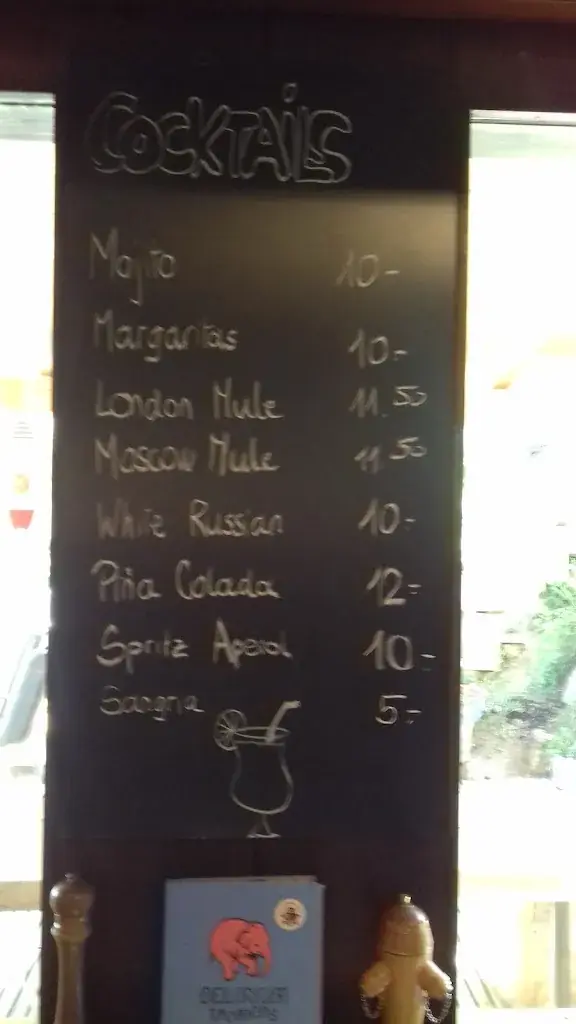 COCKTAiLS
Mojito 10-
Margaritas 10.-
London Mule 11.50
Moscow Mule 11.50
White Russian 10.-
Piña Colada 12.-
Spritz Aperol 10.-
Sangria 5.-
DELIRIUM